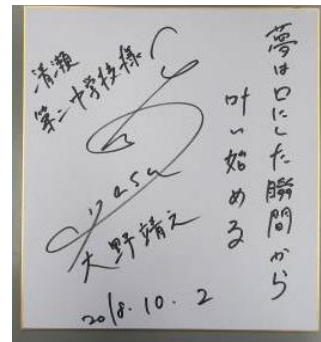 夢は口にした瞬間から
叶い始める
清瀬
第二中学校様
yasu
大野靖之
2018.10.2